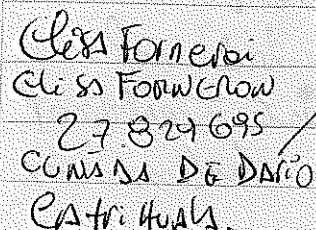 Elisa Forneroi
Elisa FORNERON
27.829695
CUÑADA DE DARIO
Catrihual.